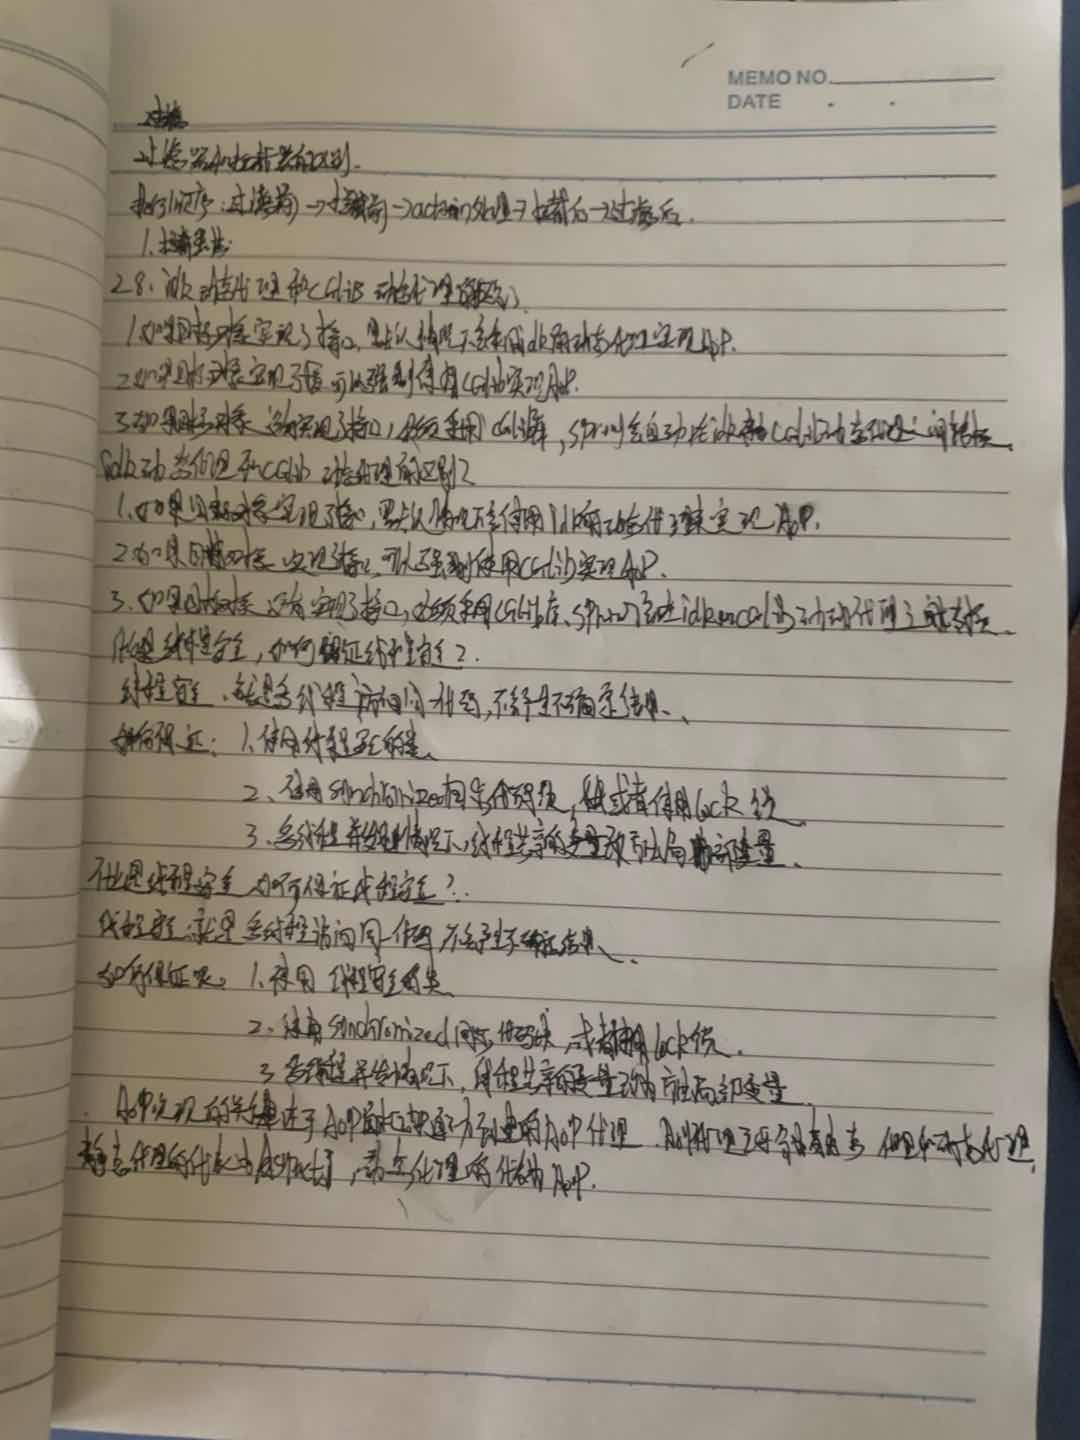 MEMO NO.
DATE
过滤
过滤器和拦截器的区别.
执行顺序:过滤前→拦截前→action处理→拦截后→过滤后.
1.拦截器
28. jdk动态代理和CGLIB动态代理的区别
1.如果目标对象实现了接口,默认情况下会采用jdk的动态代理实现AOP.
2.如果目标对象实现了接口可以强制使用CGLIB实现AOP.
3.如果目标对象没有实现了接口,必须采用CGLIB库,spring会自动在jdk和CGLIB动态代理之间转换
jdk动态代理和CGLIB动态代理的区别?
1.如果目标对象实现了接口,默认情况下会使用jdk的动态代理来实现AOP.
2.如果目标对象实现了接口,可以强制使用CGLIB实现AOP.
3.如果目标对象没有实现了接口,必须采用CGLIB库,spring会在jdk和CGLIB动态代理之间转换.
什么是线程安全,如何保证线程安全?.
线程安全,就是多线程访问同一代码,不会产生不确定结果.
如何保证:1.使用线程安全的类.
2、使用synchronized同步代码块,或者使用lock锁
3.多线程并发情况下,线程共享的变量改为局部变量.
什么是线程安全 如何保证线程安全?.
线程安全:就是多线程访问同一代码,不会产生不确定结果.
如何保证呢:1.使用线程安全的类
2.使用synchronized同步代码块,或者用lock锁.
3.多线程并发情况下,线程共享的变量改为方法局部变量.
AOP实现的关键在于AOP框架自动创建的AOP代理.AOP代理主要分为静态代理和动态代理.
静态代理的代表为AspectJ,动态代理的代表为AOP.